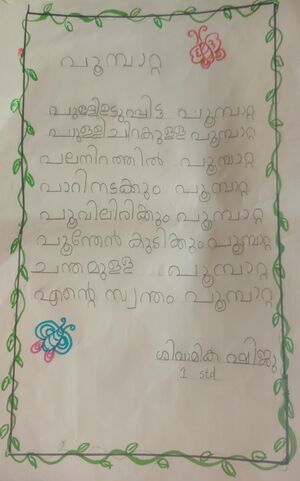 പൂമ്പാറ്റ
പുള്ളിഉടുപ്പിട്ട പൂമ്പാറ്റ
പുള്ളിചിറകുള്ള പൂമ്പാറ്റ
പലനിറത്തിൽ പൂമ്പാറ്റ
പാറിനടക്കും പൂമ്പാറ്റ
പൂവിലിരിക്കും പൂമ്പാറ്റ
പൂന്തേൻ കുടിക്കും പൂമ്പാറ്റ
ചന്തമുള്ള പൂമ്പാറ്റ
എന്റെ സ്വന്തം പൂമ്പാറ്റ
ശിവാമിക
1 std